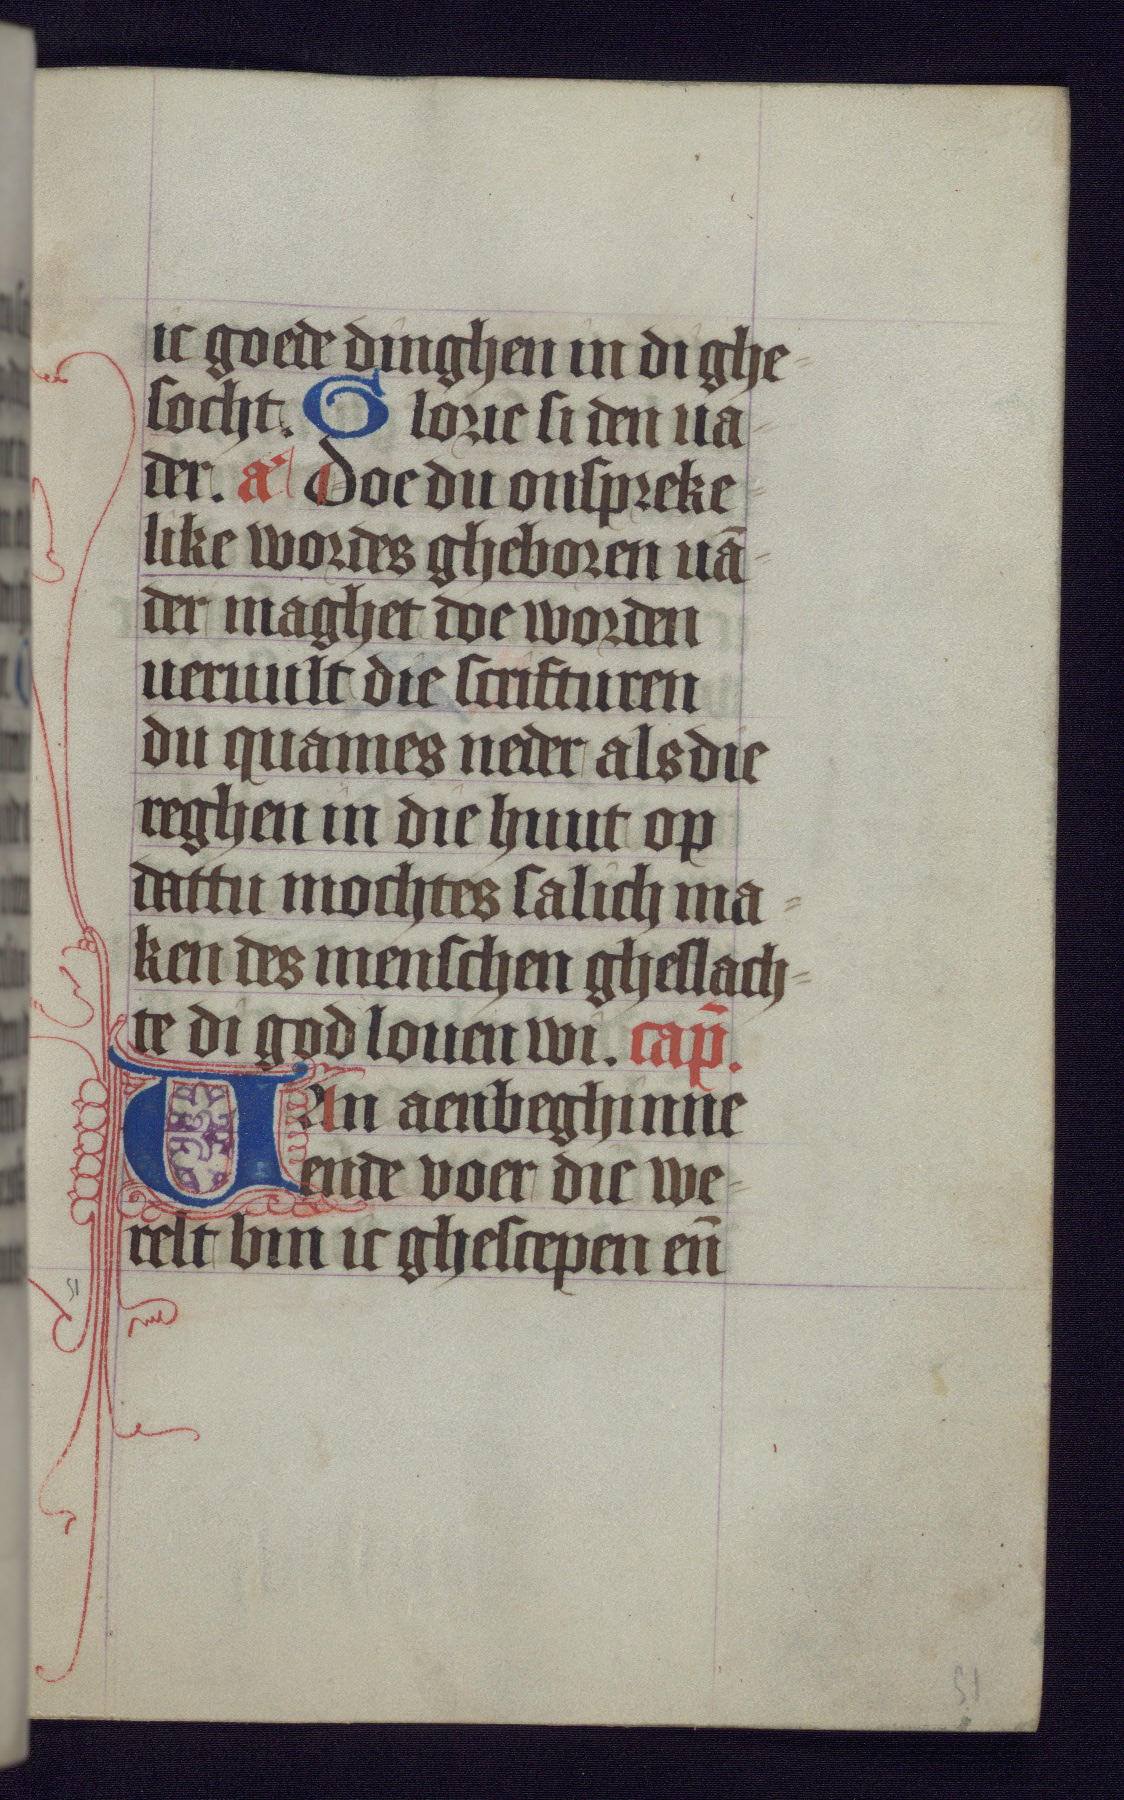 ic goede dinghen in di ghe-
socht. Glorie si den va-
der. a' Doe du onspreke-
like wordes gheboren uā-
der maghet doe worden
ueruult die scrifturen
du quames neder als die
reghen in die huut op
dattu mochtes salich ma-
ken des menschen gheslach-
te di god louen wi. cap̄.
Uan aenbeghinne
ende voer die we-
relt bin ic ghescepen en̄